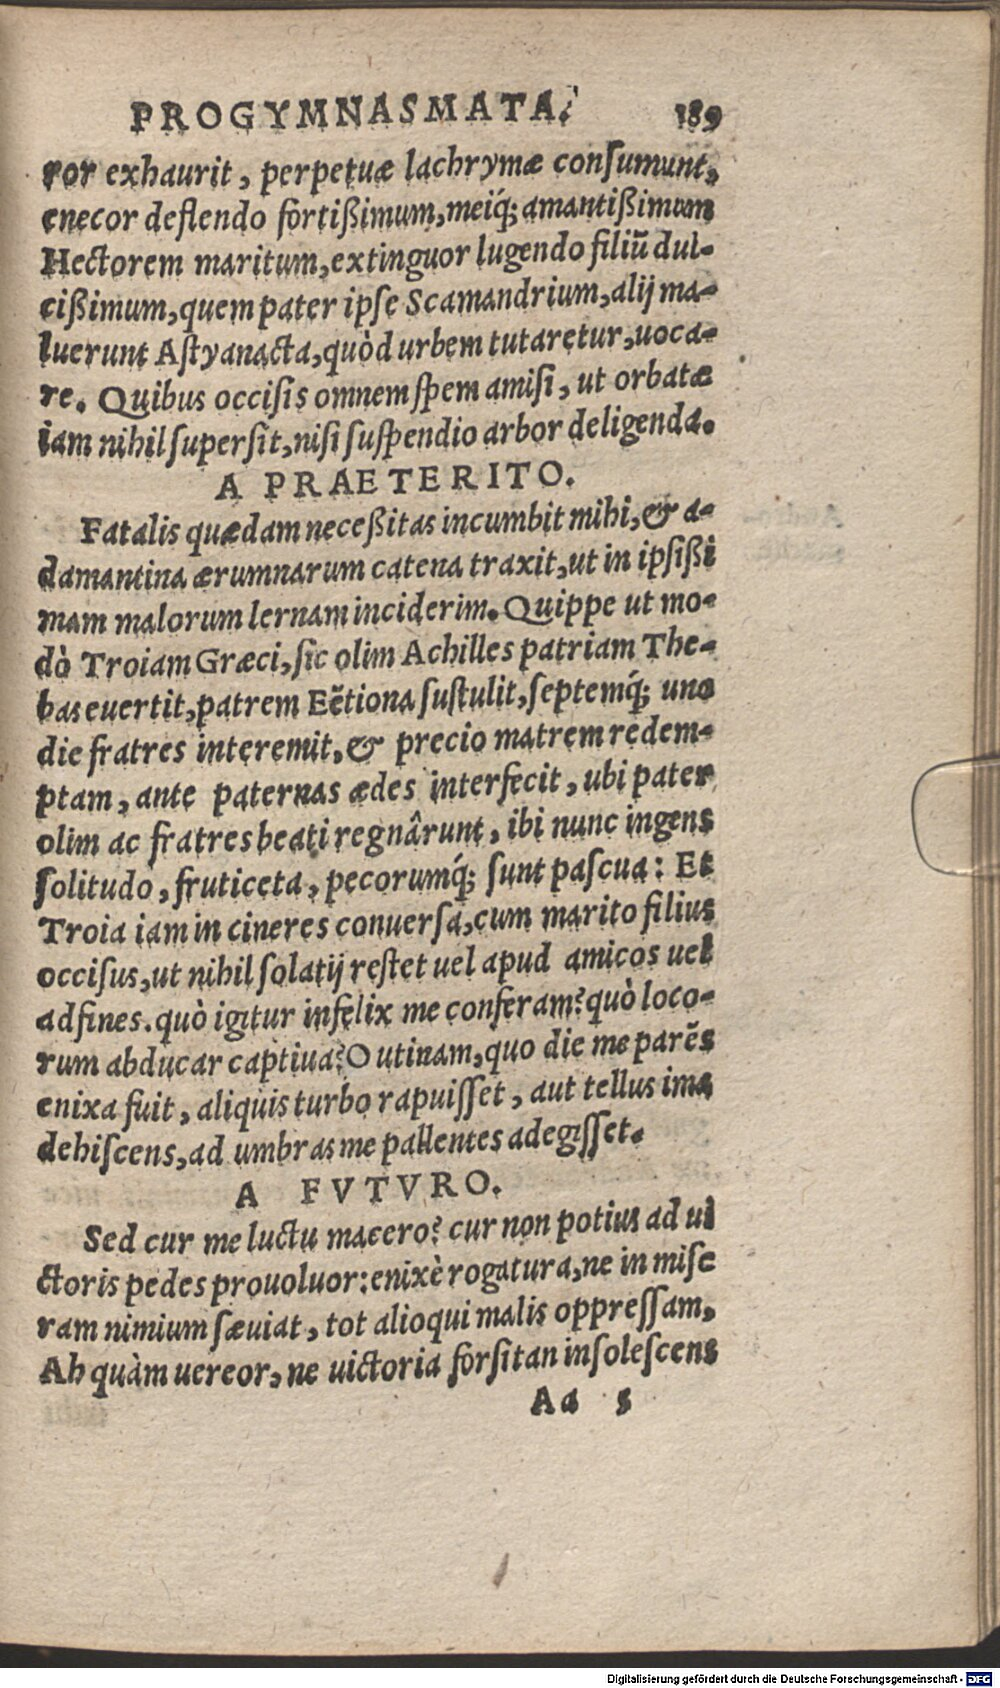 PROGYMNASMATA. 189
ror exhaurit, perpetuæ lachrymæ consumunt,
enecor deflendo fortißimum, meiq́; amantißimum
Hectorem maritum, extinguor lugendo filiū dul-
cißimum, quem pater ipse Scamandrium, alij ma-
luerunt Astyanacta, quòd urbem tutaretur, uoca-
re. Quibus occisis omnem spem amisi, ut orbatæ
iam nihil supersit, nisi suspendio arbor deligenda.
A PRAETERITO.
Fatalis quædam neceßitas incumbit mihi, & a-
damantina ærumnarum catena traxit, ut in ipsißi
mam malorum lernam inciderim. Quippe ut mo-
dò Troiam Græci, sic olim Achilles patriam The-
bas euertit, patrem Eëtiona sustulit, septemq́; uno
die fratres interemit, & precio matrem redem-
ptam, ante paternas ædes interfecit, ubi pater
olim ac fratres beati regnârunt, ibi nunc ingens
solitudo, fruticeta, pecorumq́; sunt pascua: Et
Troia iam in cineres conuersa, cum marito filius
occisus, ut nihil solatij restet uel apud amicos uel
adfines. quò igitur infelix me conferam? quò loco-
rum abducar captiua? O utinam, quo die me parēs
enixa fuit, aliquis turbo rapuisset, aut tellus ima
dehiscens, ad umbras me pallentes adegisset.
A FVTVRO.
Sed cur me luctu macero? cur non potius ad ui
ctoris pedes prouoluor: enixè rogatura, ne in mise
ram nimium sæuiat, tot alioqui malis oppressam,
Ah quàm uereor, ne uictoria forsitan insolescens
Aa 5
Digitalisierung gefördert durch die Deutsche Forschungsgemeinschaft - DFG